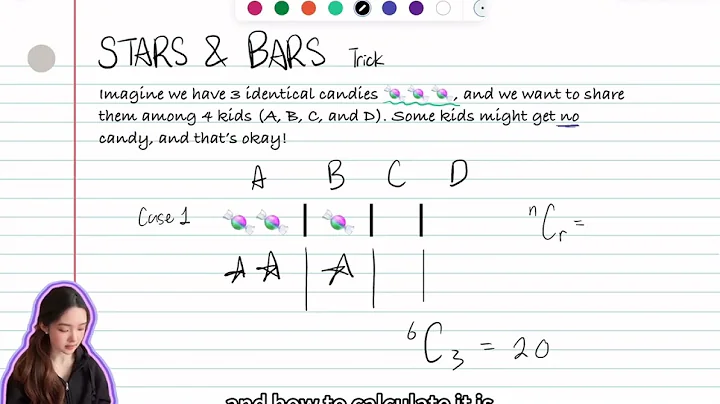 STARS & BARS Trick
Imagine we have 3 identical candies 🍬🍬🍬, and we want to share
them among 4 kids (A, B, C, and D). Some kids might get no
candy, and that's okay!
A B C D
Case 1
ⁿCᵣ =
⁶C₃ = 20
and how to calculate it is